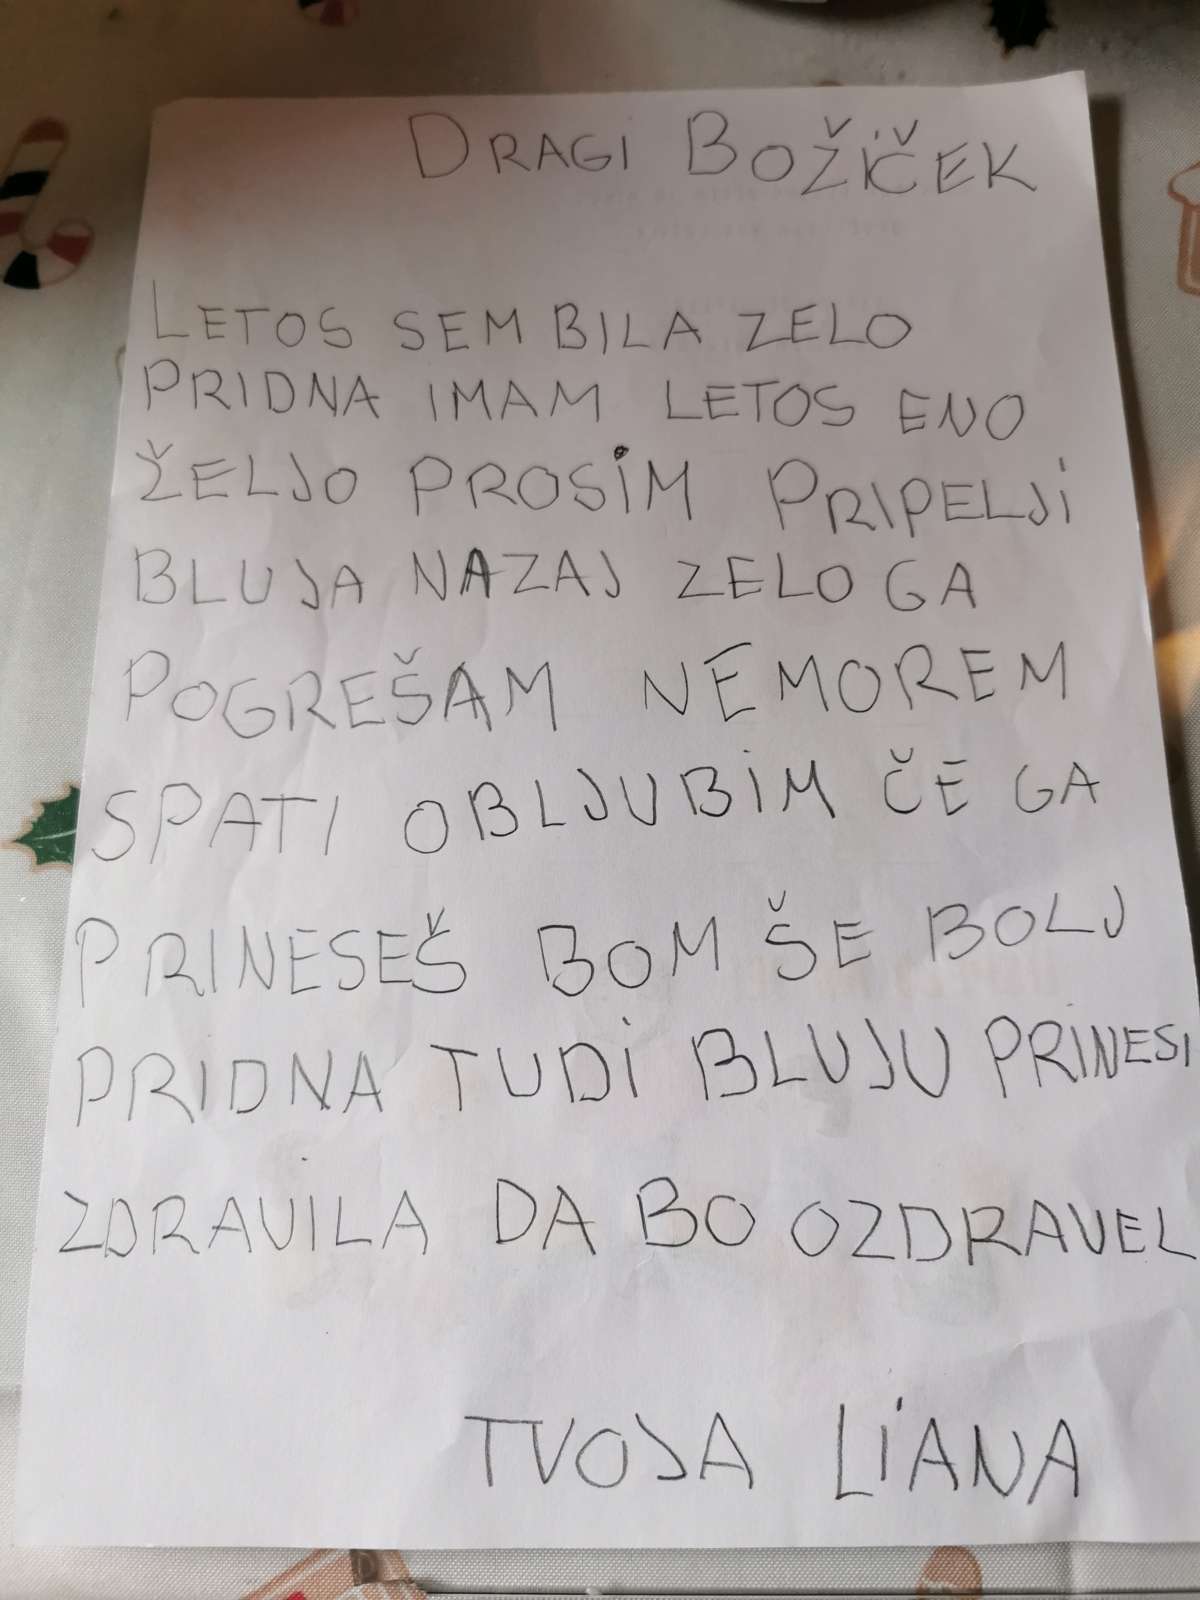 DRAGI BOŽIČEK
LETOS SEM BILA ZELO
PRIDNA IMAM LETOS ENO
ŽELJO PROSIM PRIPELJI
BLUJA NAZAJ ZELO GA
POGREŠAM NEMOREM
SPATI OBLJUBIM ČE GA
PRINESEŠ BOM ŠE BOLJ
PRIDNA TUDI BLUJU PRINESI
ZDRAVILA DA BO OZDRAVEL
TVOJA LIANA